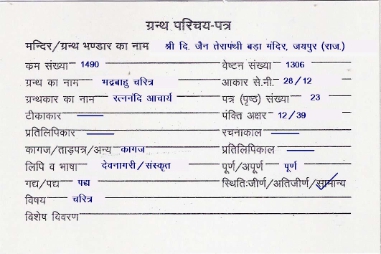 ग्रन्थ परिचय-पत्र
मन्दिर/ग्रन्थ भण्डार का नाम श्री दि. जैन तेरापंथी बड़ा मंदिर, जयपुर (राज.)
क्रम संख्या 1490 वेष्टन संख्या 1306
ग्रन्थ का नाम भद्रबाहु चरित्र आकार से.मी. 26/12
ग्रन्थकार का नाम रत्ननंदि आचार्य पत्र (पृष्ठ) संख्या 23
टीकाकार — पंक्ति अक्षर 12/39
प्रतिलिपिकार — रचनाकाल —
कागज/ताड़पत्र/अन्य कागज प्रतिलिपिकाल —
लिपि व भाषा देवनागरी/संस्कृत पूर्ण/अपूर्ण पूर्ण
गद्य/पद्य पद्य स्थिति:जीर्ण/अतिजीर्ण/सामान्य
विषय चरित्र
विशेष विवरण